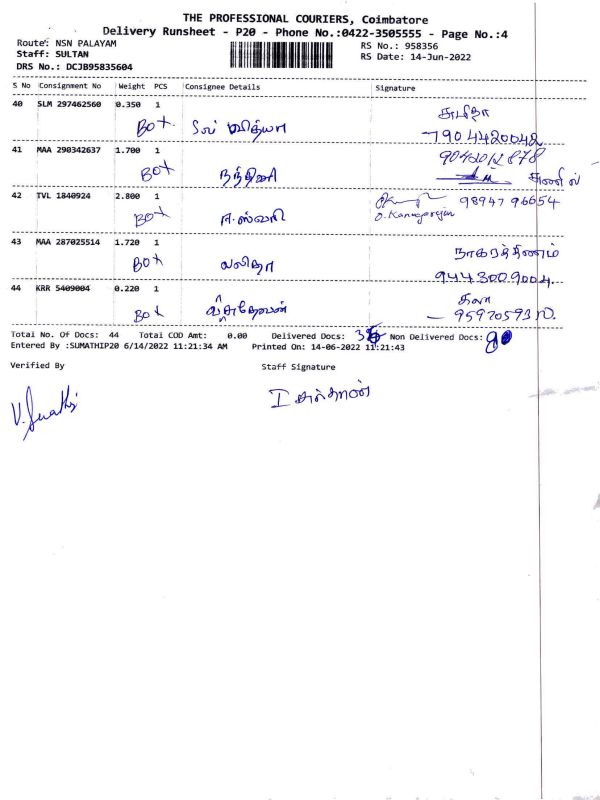 THE PROFESSIONAL COURIERS, Coimbatore
Delivery Runsheet - P20 - Phone No.:0422-3505555 - Page No.:4
Route: NSN PALAYAM
RS No.: 958356
Staff: SULTAN
RS Date: 14-Jun-2022
DRS No.: DCJB95835604
S No Consignment No Weight PCS Consignee Details Signature
40 SLM 297462560 0.350 1
Box
7904420042
41 MAA 290342637 1.700 1
Box நந்தினி
42 TVL 1840924 2.800 1
9894796654
Box
43 MAA 287025514 1.720 1
Box லலிதா நாகரத்தினம்
9443009004
44 KRR 5409004 0.220 1
Box
9597059310
Total No. Of Docs: 44 Total COD Amt: 0.00 Delivered Docs: Non Delivered Docs:
Entered By :SUMATHIP20 6/14/2022 11:21:34 AM Printed On: 14-06-2022 11:21:43
Verified By Staff Signature